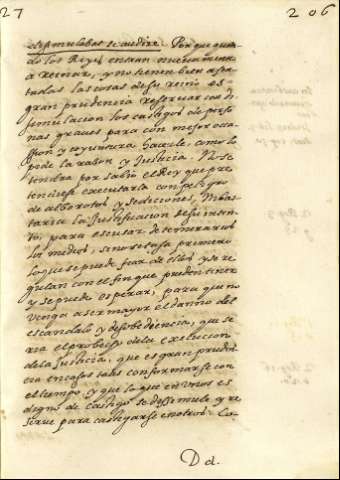 27
206
Por que quan
do los Reyes entran nuevamente
a Reinar, y no tienen bien assen
tadas las cosas de su reino es
gran prudencia reservar con di
simulacion los castigos de perso
nas graves para con mejor occa
ssion y coyuntura hacerle, como lo
pide la razon y Justicia. No se
tendra por sabio el Rey que pre
tendiese executarla con peligro
de alborotos y sediciones, Ni bas
taria la Justificacion de su inten
to, para escusar de temerarios
los medios, si no se tassa primero
lo que se puede fiar de ellos y se re
gulan con el fin que pueden tener
y se puede esperar, para que no
venga a ser mayor el danno del
escandalo y desobediencia, que se
ria el probecho de la execucion
de la Justicia, que es gran pruden
cia en casos tales conformarse con
el tiempo, y que lo que en unos es
digno de castigo se dissimule y re
serve para castigarse en otros. Co
D d.